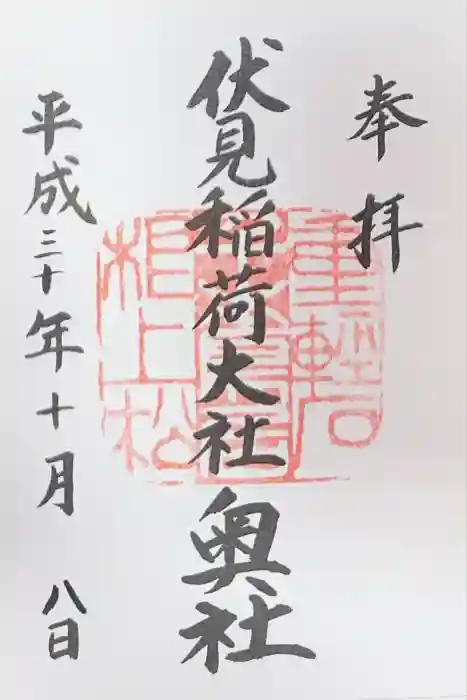 奉拝
伏見稲荷大社奥社
平成三十年十月八日